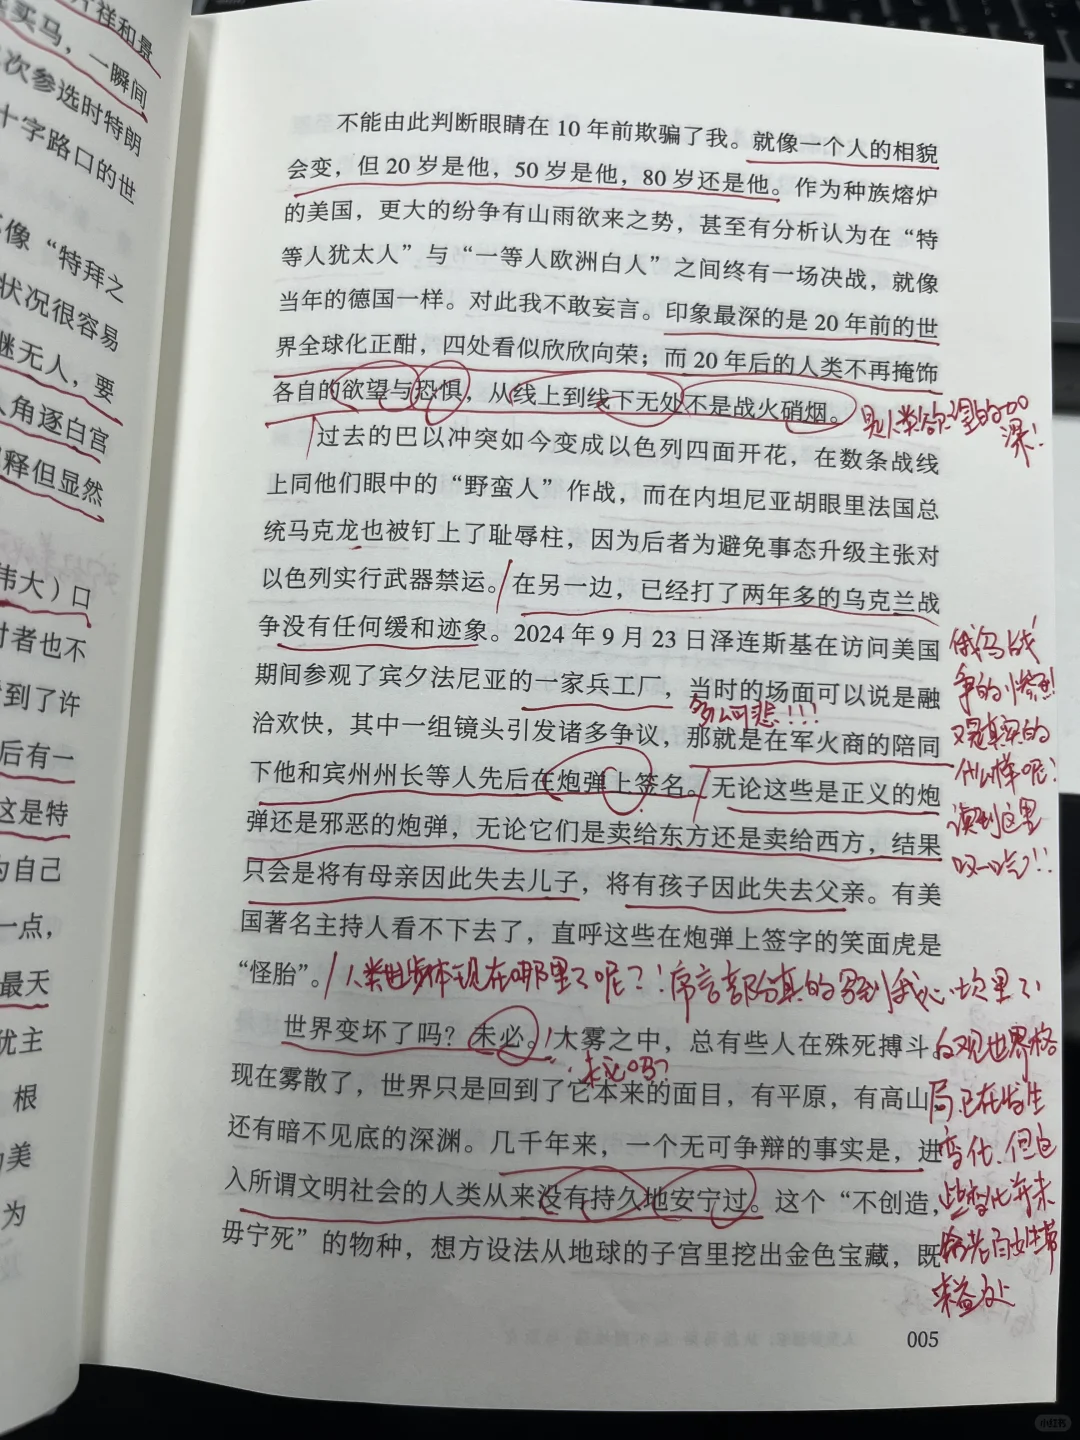 片祥和景
买马，一瞬间
次参选时特朗
十字路口的世
像“特拜之
状况很容易
继无人，要
人角逐白宫
释但显然
伟大）口
对者也不
看到了许
后有一
这是特
为自己
一点，
最天
犹主
根
美
为
不能由此判断眼睛在 10 年前欺骗了我。就像一个人的相貌
会变，但 20 岁是他，50 岁是他，80 岁还是他。作为种族熔炉
的美国，更大的纷争有山雨欲来之势，甚至有分析认为在“特
等人犹太人”与“一等人欧洲白人”之间终有一场决战，就像
当年的德国一样。对此我不敢妄言。印象最深的是 20 年前的世
界全球化正酣，四处看似欣欣向荣；而 20 年后的人类不再掩饰
各自的欲望与恐惧，从线上到线下无处不是战火硝烟。
是人类欲望的加
深！
过去的巴以冲突如今变成以色列四面开花，在数条战线
上同他们眼中的“野蛮人”作战，而在内坦尼亚胡眼里法国总
统马克龙也被钉上了耻辱柱，因为后者为避免事态升级主张对
以色列实行武器禁运。在另一边，已经打了两年多的乌克兰战
争没有任何缓和迹象。2024 年 9 月 23 日泽连斯基在访问美国
期间参观了宾夕法尼亚的一家兵工厂，当时的场面可以说是融
多么可悲！！！
洽欢快，其中一组镜头引发诸多争议，那就是在军火商的陪同
下他和宾州州长等人先后在炮弹上签名。无论这些是正义的炮
弹还是邪恶的炮弹，无论它们是卖给东方还是卖给西方，结果
只会是将有母亲因此失去儿子，将有孩子因此失去父亲。有美
国著名主持人看不下去了，直呼这些在炮弹上签字的笑面虎是
“怪胎”。
俄乌战
争的惨烈
又是真实的
什么样呢！
读到这里
叹一叹！！
人类进步体现在哪里了呢？！序言部分真的写到我心坎里了！
世界变坏了吗？未必。大雾之中，总有些人在殊死搏斗。
未必吗？
现在雾散了，世界只是回到了它本来的面目，有平原，有高山，
还有暗不见底的深渊。几千年来，一个无可争辩的事实是，进
入所谓文明社会的人类从来没有持久地安宁过。这个“不创造，
毋宁死”的物种，想方设法从地球的子宫里挖出金色宝藏，既
观世界格
局已在发生
变化，但
些变化并未
给老百姓带
来益处
005
小红书